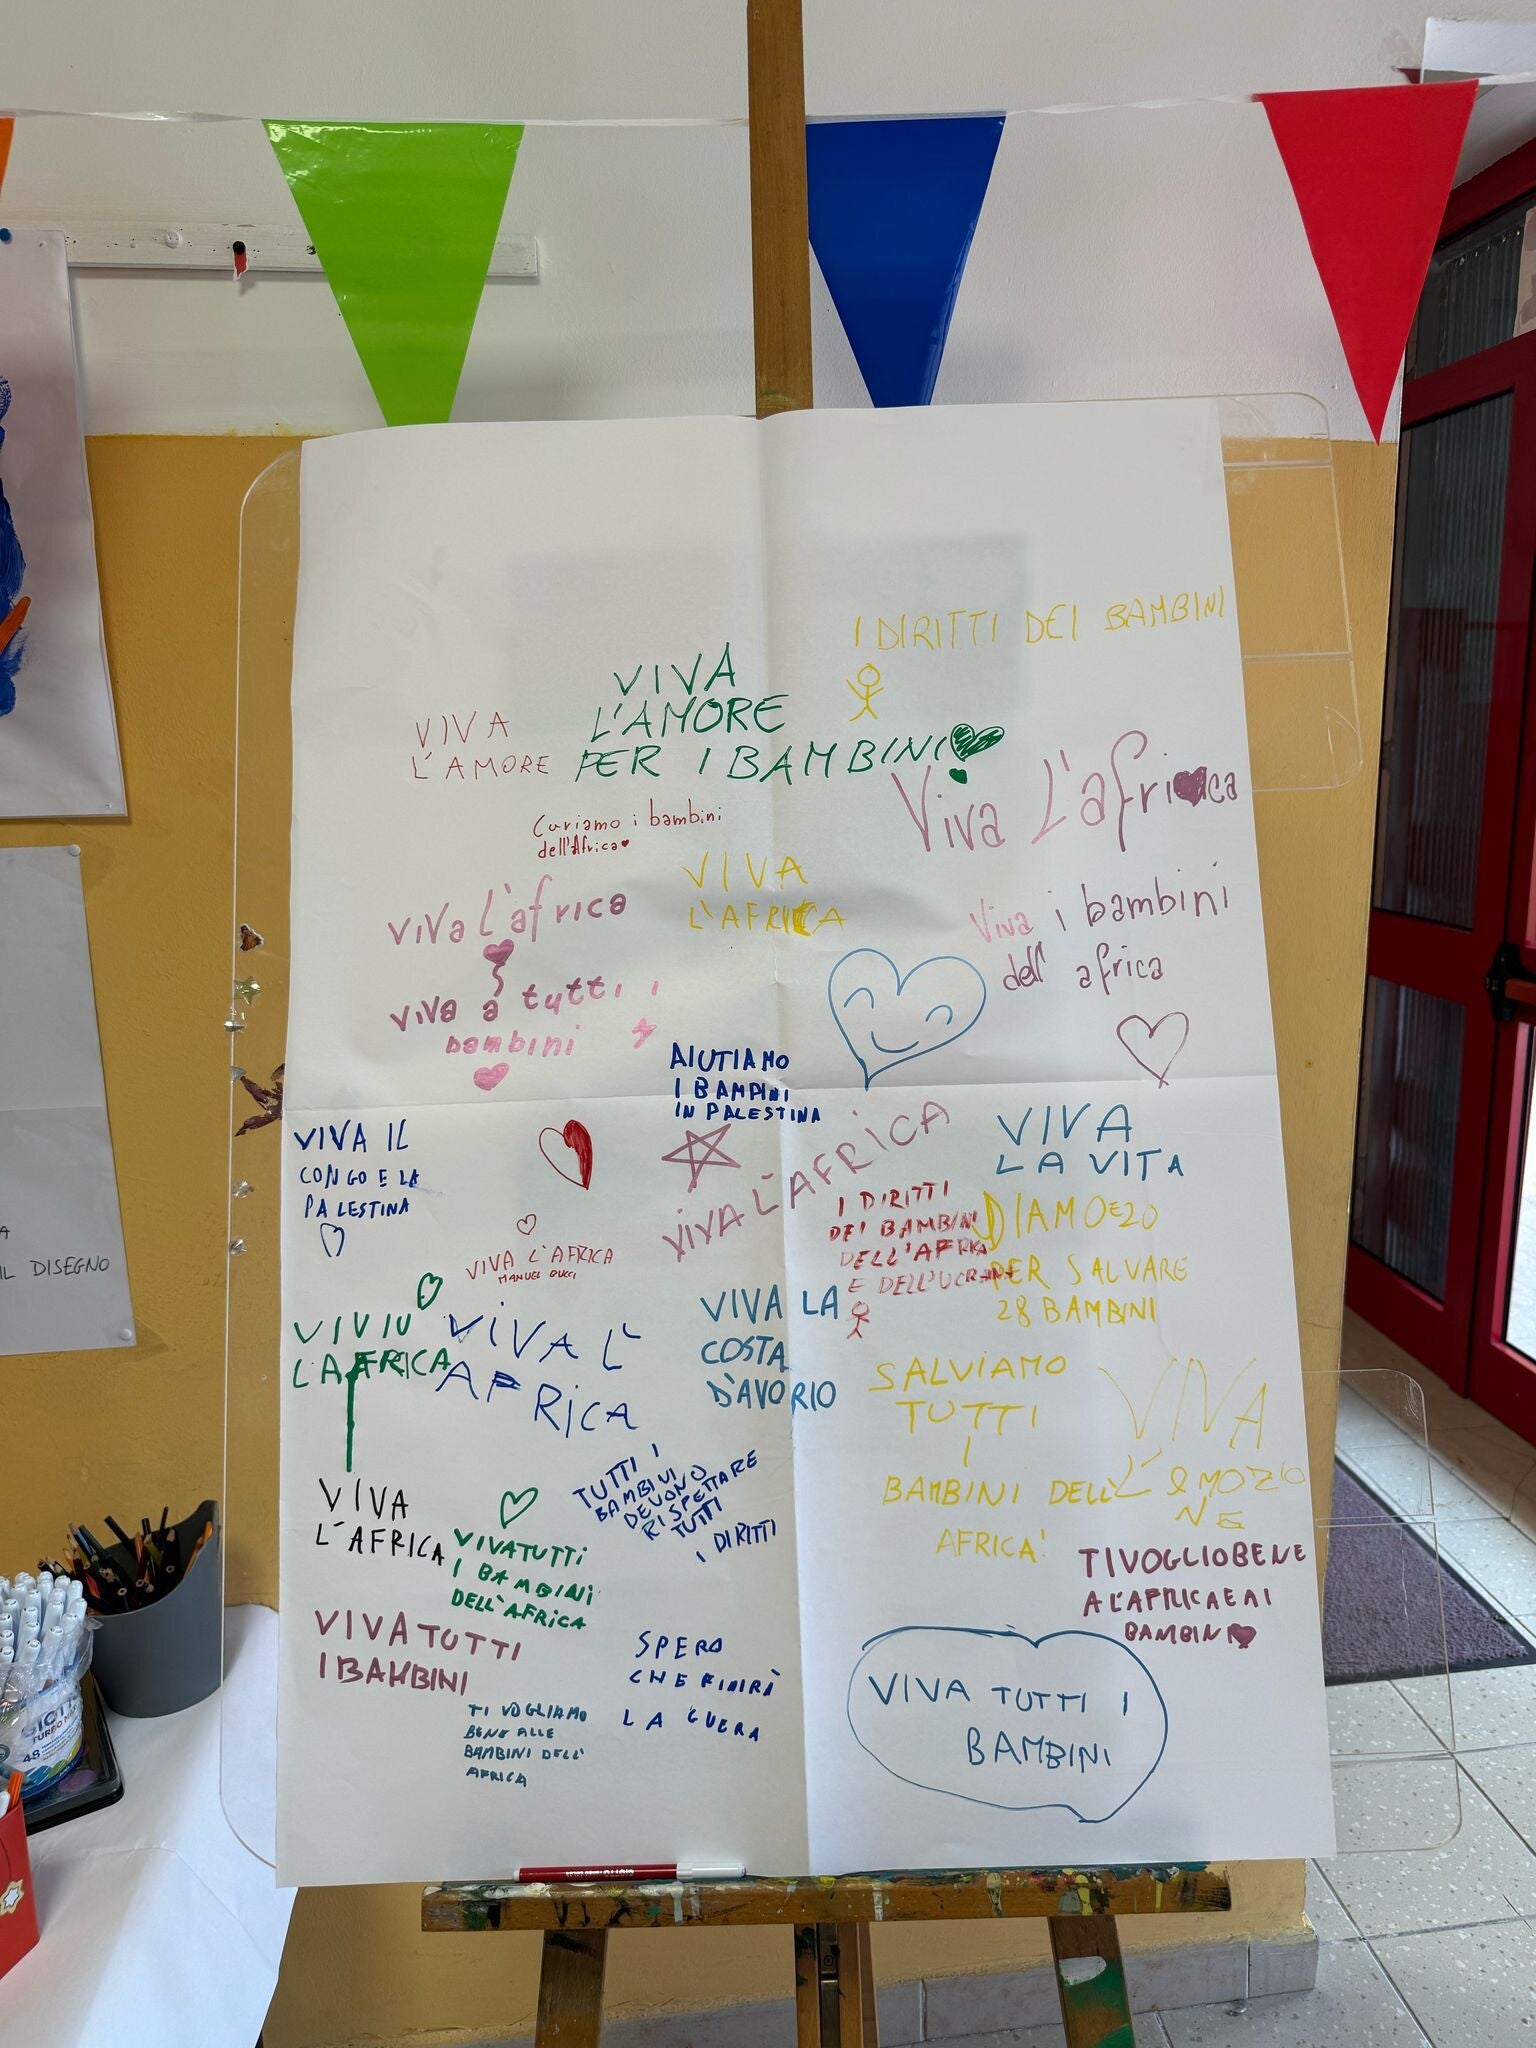 I DIRITTI DEI BAMBINI
VIVA
L'AMORE
PER I BAMBINI
VIVA
L'AMORE
Viva L'africa
Curiamo i bambini
dell'Africa
VIVA
L'AFRICA
viva l'africa
viva a tutti i
bambini
Viva i bambini
dell' africa
AIUTIAMO
I BAMPINI
IN PALESTINA
VIVA IL
CONGO E LA
PALESTINA
VIVA L'AFRICA
VIVA
LA VITA
I DIRITTI
DEI BAMBINI
DELL'AFRICA
E DELL'UCRAINA
DIAMO €20
PER SALVARE
28 BAMBINI
VIVA L'AFRICA
MANUEL BUCCI
VIVIU
LAFRICA
VIVA L'
AFRICA
VIVA LA
COSTA
D'AVORIO
SALVIAMO
TUTTI
I
BAMBINI DELL'
AFRICA'
VIVA
L'EMOZIO
NE
VIVA
L'AFRICA
VIVA TUTTI
I BAMBINI
DELL'AFRICA
TUTTI I
BAMBINI
DEVONO
RISPETTARE
TUTTI
I DIRITTI
TIVOGLIOBENE
A L'AFRICA E AI
BAMBINI
VIVA TUTTI
I BAMBINI
SPERO
CHE FINIRÀ
LA GUERA
TI VOGLIAMO
BENE ALLE
BAMBINI DELL'
AFRICA
VIVA TUTTI I
BAMBINI
IL DISEGNO
GIOTTO
TURBO MAXI
48